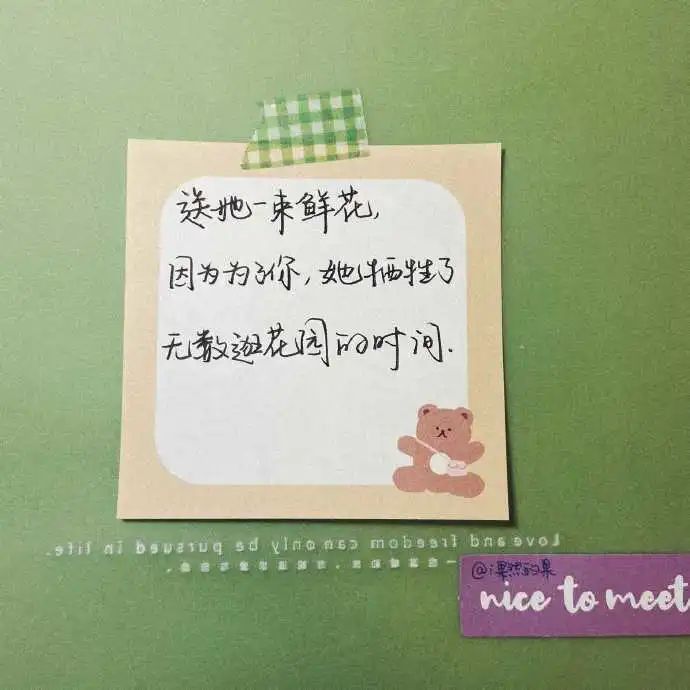 送她一束鲜花,
因为为了你,她牺牲了
无数逛花园的时间.
Love and freedom can only be pursued in life.
@i果然的果
nice to meet